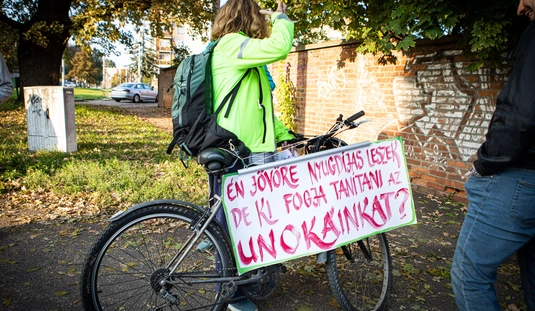 ÉN JÖVŐRE NYUGDÍJAS LESZEK
DE KI FOGJA TANÍTANI AZ
UNOKÁINKAT?